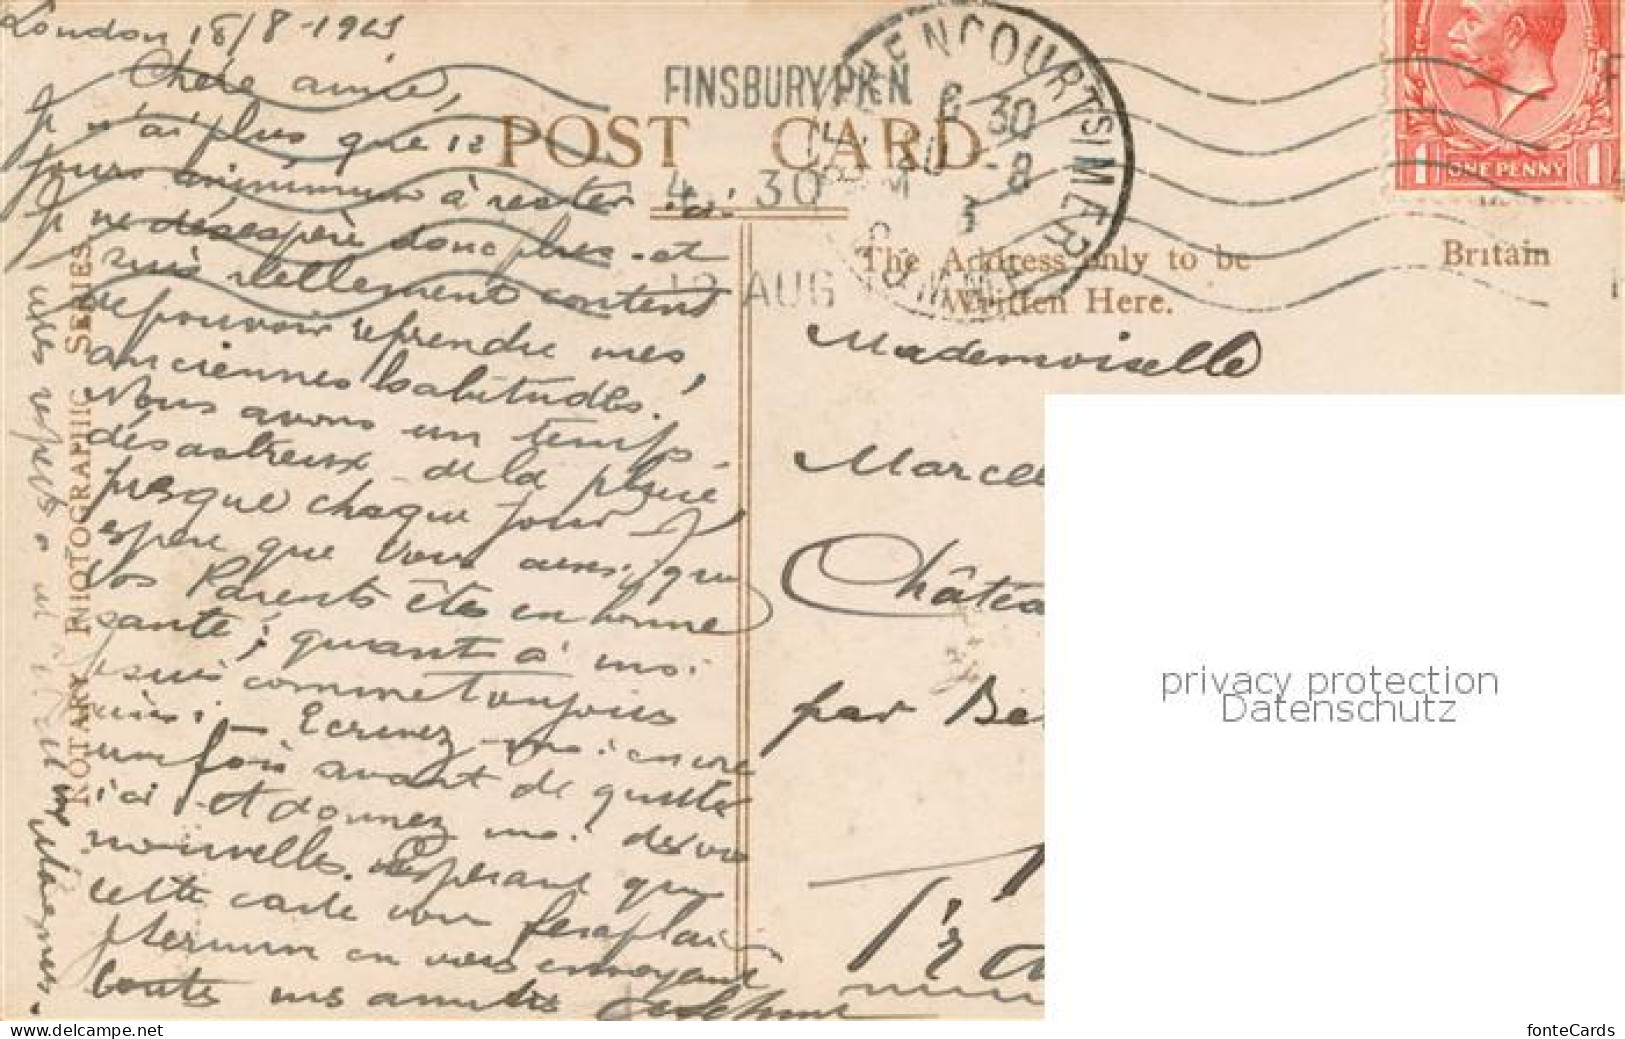 London 18/8-1921
Chère amie,
Je n'ai plus que 12
jours minimum à rester ici
Je ne désespère donc plus et
suis réellement content
de pouvoir reprendre mes
anciennes habitudes.
Nous avons un temps
désastreux de la pluie
presque chaque jour J'
espere que vous ainsi que
vos Parents êtes en bonne
santé; quant à moi
suis comme toujours
Ecrivez moi encore
une fois avant de quitter
ici, et donnez moi de vos
nouvelles. Esperant que
cette carte vous fera plaisir
je termine en vous envoyant
toutes mes amitiés
mes respects a
POST CARD
FINSBURY PK.N
4 30
12 AUG
ENCOURT
SOMME
6 30
-8
ONE PENNY
1 1
The Address only to be
Written Here.
Britain
ROTARY PHOTOGRAPHIC SERIES
Mademoiselle
Marcel
Châtea
par Be
Fra
privacy protection
Datenschutz
www.delcampe.net
fonteCards